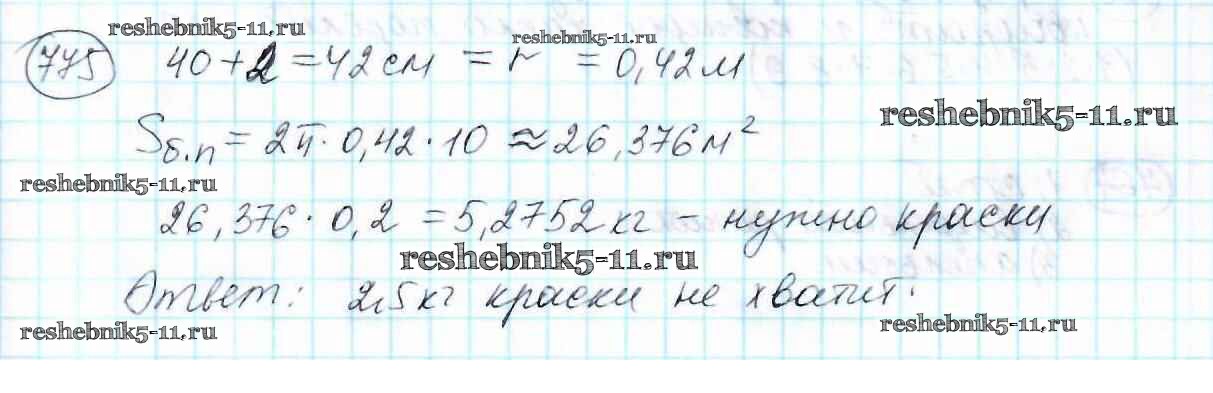 reshebnik5-11.ru
775 40+2=42см = r = 0,42м
reshebnik5-11.ru
reshebnik5-11.ru
Sб.п = 2π·0,42·10 ≈ 26,376м²
reshebnik5-11.ru
26,376·0,2 = 5,2752кг - нужно краски
reshebnik5-11.ru
Ответ: 2,5кг краски не хватит.
reshebnik5-11.ru
reshebnik5-11.ru